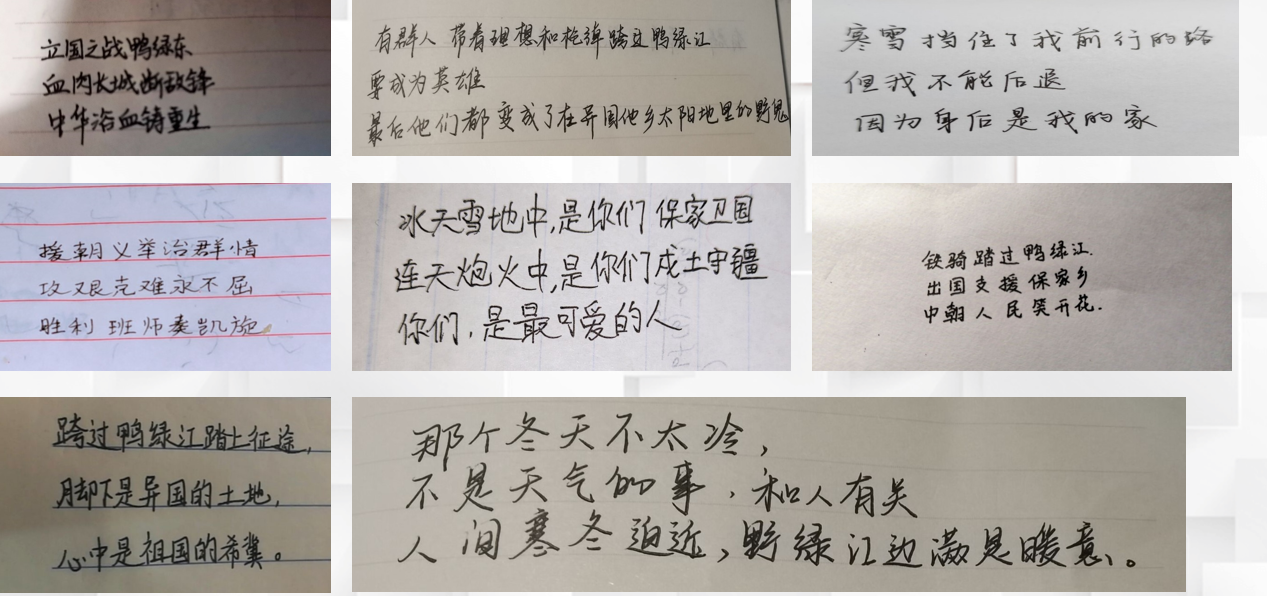 立国之战鸭绿东
血肉长城断敌锋
中华浴血铸重生
有群人 带着理想和枪弹跨过鸭绿江
要成为英雄
最后他们都变成了在异国他乡太阳地里的野鬼
寒雪挡住了我前行的路
但我不能后退
因为身后是我的家
援朝义举治群情
攻艰克难永不屈
胜利班师奏凯旋
冰天雪地中,是你们保家卫国
连天炮火中,是你们戍土守疆
你们,是最可爱的人
铁骑踏过鸭绿江.
出国支援保家乡
中朝人民笑开花.
跨过鸭绿江踏上征途,
脚下是异国的土地,
心中是祖国的希冀。
那个冬天不太冷,
不是天气的事,和人有关
人间寒冬迫近,野绿江边满是暖意、。